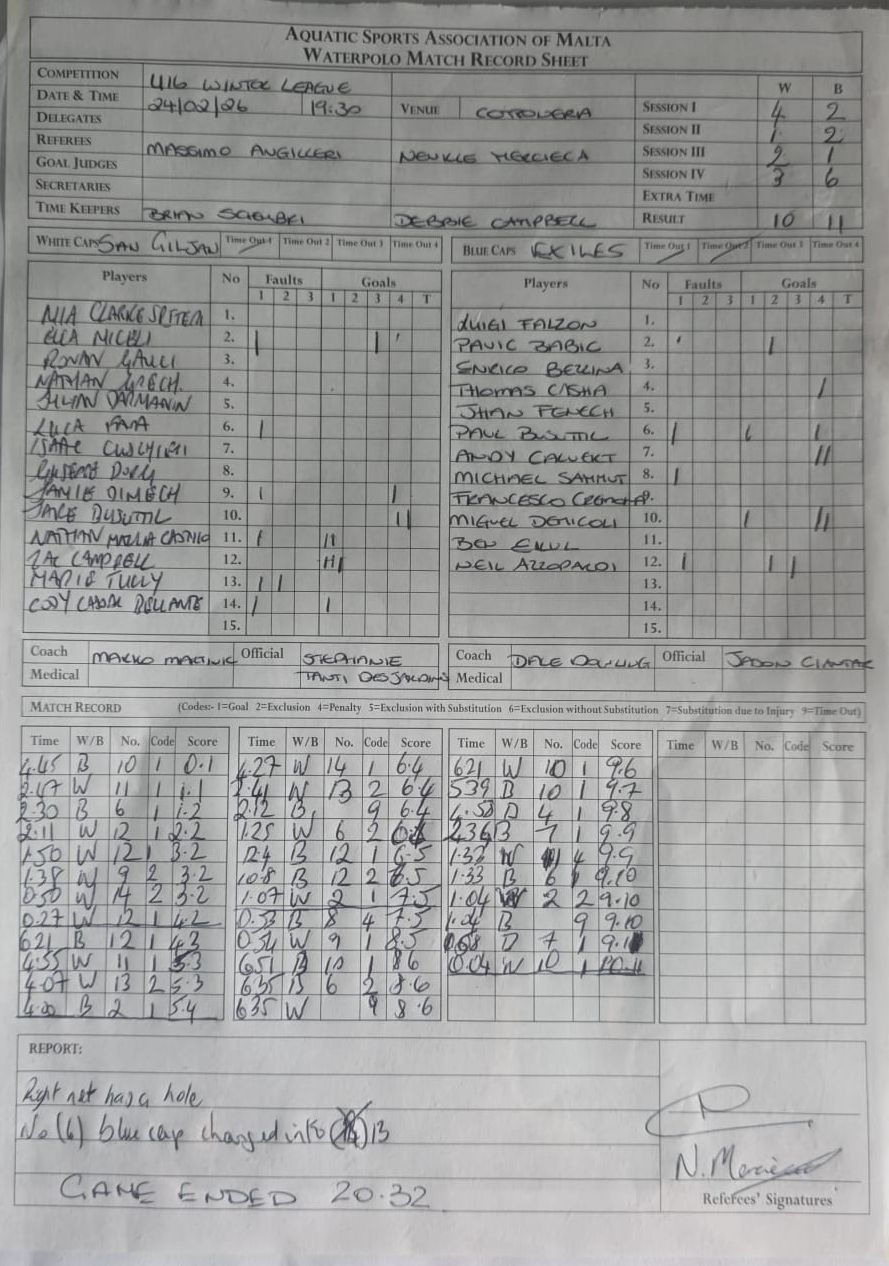 AQUATIC SPORTS ASSOCIATION OF MALTA
WATERPOLO MATCH RECORD SHEET
COMPETITION U16 WINTER LEAGUE W B
DATE & TIME 24/02/26 19:30 VENUE COTTONERA SESSION I 4 2
DELEGATES SESSION II 1 2
REFEREES MASSIMO ANGILLERI NEVILLE MERCIECA SESSION III 2 1
GOAL JUDGES SESSION IV 3 6
SECRETARIES EXTRA TIME
TIME KEEPERS BRIAN SCHEMBRI DEBBIE CAMPBELL RESULT 10 11
WHITE CAPS SAN GILJAN Time Out 1 Time Out 2 Time Out 3 Time Out 4 BLUE CAPS EXILES Time Out 1 Time Out 2 Time Out 3 Time Out 4
Players No Faults Goals Players No Faults Goals
1 2 3 1 2 3 4 T 1 2 3 1 2 3 4 T
1. LUIGI FALZON 1.
ELLA MICELI 2. PAVIC BABIC 2.
3. ENRICO BELLINA 3.
4. THOMAS CASHA 4.
5. JHAN FENECH 5.
LUCA 6. PAUL BUSUTTIL 6.
7. ANDY CALVERT 7.
8. MICHAEL SAMMUT 8.
JAMIE DIMECH 9. FRANCESCO 9.
JAKE BUSUTTIL 10. MIGUEL DEBICOLI 10.
NATHAN MALLIA CASTILLO 11. BEN 11.
ZAC CAMPBELL 12. NEIL AZZOPARDI 12.
TULLY 13. 13.
CODY 14. 14.
15. 15.
Coach MARKO MARTINIC Official STEPHANIE Coach DALE DOWLING Official JASON CIANTAR
Medical TANTI DESJARDINS Medical
MATCH RECORD (Codes:- 1=Goal 2=Exclusion 4=Penalty 5=Exclusion with Substitution 6=Exclusion without Substitution 7=Substitution due to Injury 9=Time Out)
Time W/B No. Code Score Time W/B No. Code Score Time W/B No. Code Score Time W/B No. Code Score
4.45 B 10 1 0.1 4.27 W 14 1 6.4 621 W 10 1 9.6
2.47 W 11 1 1.1 2.41 W 13 2 6.4 539 B 10 1 9.7
2.30 B 6 1 1.2 2.12 B 9 6.4 4.50 B 4 1 9.8
2.11 W 12 1 2.2 1.25 W 6 2 6.4 2.36 B 7 1 9.9
1.50 W 12 1 3.2 B 12 1 6.5 1.33 W 4 9.9
1.38 W 9 2 3.2 10.8 B 12 2 6.5 1.33 B 6 1 9.10
0.50 W 14 2 3.2 1.07 W 2 1 7.5 1.04 W 2 2 9.10
0.27 W 12 1 4.2 0.53 B 8 4 7.5 1.04 B 9 9.10
621 B 12 1 4.3 0.34 W 9 1 8.5 B 7 1 9.11
4.55 W 11 1 5.3 6.51 B 10 1 8.6 0.04 W 10 1 10.11
4.07 W 13 2 5.3 6.35 B 6 2 8.6
4.00 B 2 1 5.4 6.35 W 9 8.6
REPORT:
Right net has a hole
No (6) blue cap changed into 13
GAME ENDED 20.32
N. Mercieca
Referees' Signatures